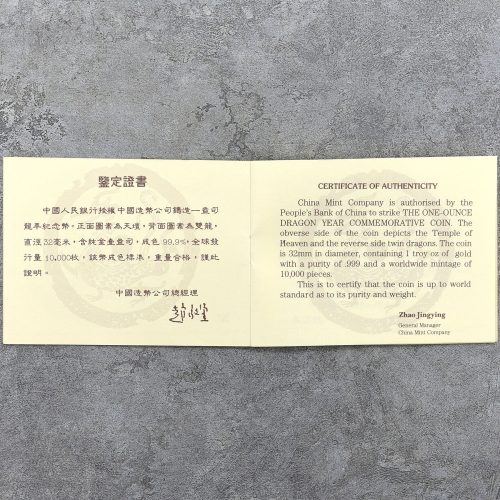 鑒定證書
中國人民銀行授權中國造幣公司鑄造一盎司
龍年紀念幣，正面圖案為天壇，背面圖案為雙龍，
直徑32毫米，含純金壹盎司，成色99.9%，全球發
行量10,000枚，該幣成色標準，重量合格，謹此
證明。
中國造幣公司總經理
CERTIFICATE OF AUTHENTICITY
China Mint Company is authorised by the
People's Bank of China to strike THE ONE-OUNCE
DRAGON YEAR COMMEMORATIVE COIN. The
obverse side of the coin depicts the Temple of
Heaven and the reverse side twin dragons. The coin
is 32mm in diameter, containing 1 troy oz of gold
with a purity of .999 and a worldwide mintage of
10,000 pieces.
This is to certify that the coin is up to world
standard as to its purity and weight.
Zhao Jingying
General Manager
China Mint Company